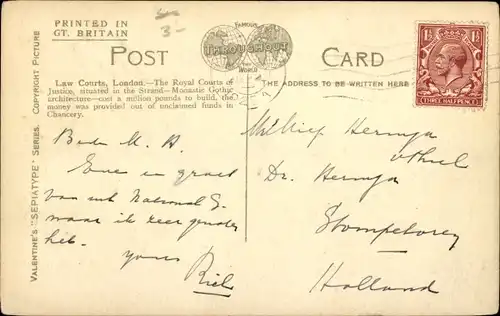 PRINTED IN
GT. BRITAIN
3-
POST
FAMOUS
THROUGHOUT
THE
WORLD
CARD
1½ 1½
THREE HALF PENCE
THE ADDRESS TO BE WRITTEN HERE
Law Courts, London.—The Royal Courts of
Justice, situated in the Strand—Monastic Gothic
architecture—cost a million pounds to build, the
money was provided out of unclaimed funds in
Chancery.
VALENTINE'S "SEPIATYPE" SERIES. COPYRIGHT PICTURE
Beste M. A.
Even een groet
van uit National G.
waar ik zeer genoten
heb.
yours
Riek
Hermja
Dr. Hermja
Stompetoren
Holland